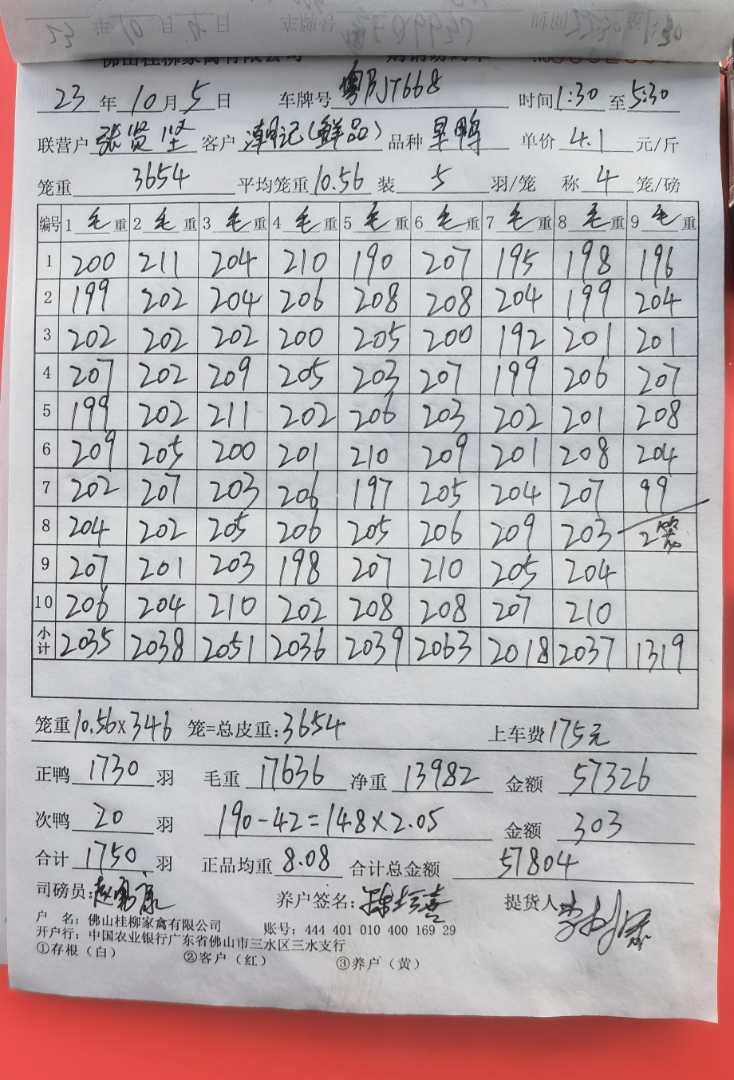 佛山桂柳家禽有限公司
23年10月5日 车牌号 粤 JT668 时间1:30至5:30
联营户 张贤坚 客户 潮记(鲜品) 品种 旱鸭 单价 4.1 元/斤
笼重 3654 平均笼重10.56 装 5 羽/笼 称 4 笼/磅
编号 1 毛 重 2 毛 重 3 毛 重 4 毛 重 5 毛 重 6 毛 重 7 毛 重 8 毛 重 9 毛 重
1 200 211 204 210 190 207 195 198 196
2 199 202 204 206 208 208 204 199 204
3 202 202 202 200 205 200 192 201 201
4 207 202 209 205 203 207 199 206 207
5 199 202 211 202 206 203 202 201 208
6 209 205 200 201 210 209 201 208 204
7 202 207 203 206 197 205 204 207 99
8 204 202 205 206 205 206 209 203 2笼
9 207 201 203 198 207 210 205 204
10 206 204 210 202 208 208 207 210
小计 2035 2038 2051 2036 2039 2063 2018 2037 1319
笼重10.56×346 笼=总皮重:3654 上车费175元
正鸭 1730 羽 毛重 17636 净重 13982 金额 57326
次鸭 20 羽 190-42=148×2.05 金额 303
合计 1750 羽 正品均重 8.08 合计总金额 57804
司磅员: 养户签名: 提货人
户 名:佛山桂柳家禽有限公司 账号:444 401 010 400 169 29
开户行:中国农业银行广东省佛山市三水区三水支行
①存根(白) ②客户(红) ③养户(黄)